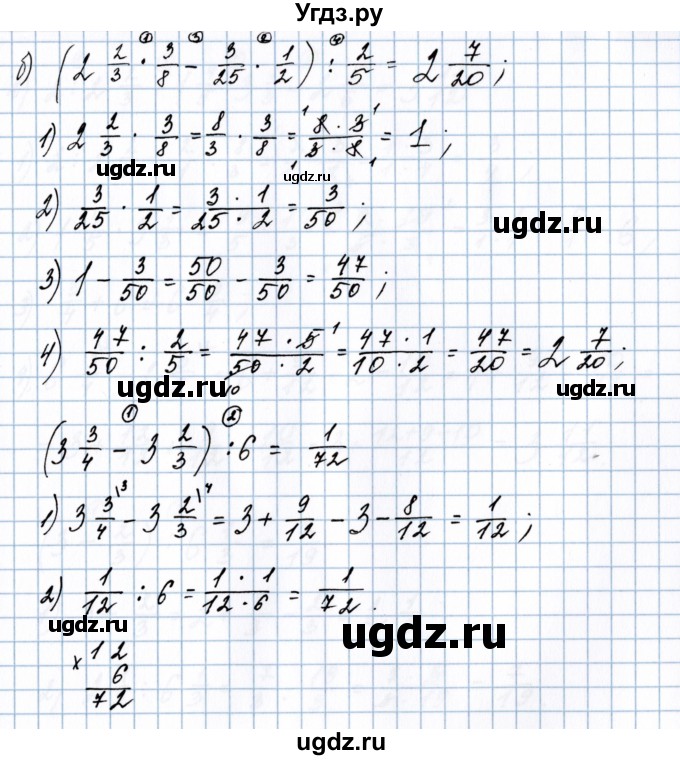 Угдз.ру
б) (2 2/3 · 3/8 - 3/25 · 1/2) : 2/5 = 2 7/20;
1) 2 2/3 · 3/8 = 8/3 · 3/8 = 8·3/3·8 = 1;
ugdz.ru ugdz.ru
2) 3/25 · 1/2 = 3·1/25·2 = 3/50;
ugdz.ru
3) 1 - 3/50 = 50/50 - 3/50 = 47/50;
4) 47/50 : 2/5 = 47·5/50·2 = 47·1/10·2 = 47/20 = 2 7/20;
ugdz.ru ugdz.ru
(3 3/4 - 3 2/3) : 6 = 1/72
1) 3 3/4 - 3 2/3 = 3 + 9/12 - 3 - 8/12 = 1/12;
ugdz.ru ugdz.ru
2) 1/12 : 6 = 1·1/12·6 = 1/72.
ugdz.ru ugdz.ru
× 12
6
72
ugdz.ru